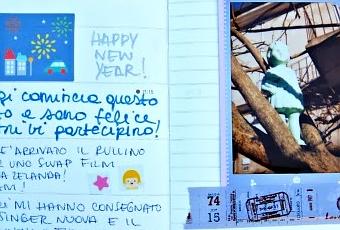 HAPPY
NEW
YEAR!
gi comincia questo
to e sono felice
tri vi partecipino!
E' ARRIVATO IL RULLINO
R UNO SWAP FILM
A ZELANDA!
AM!
RI MI HANNO CONSEGNATO
SINGER NUOVA E IL
74
15